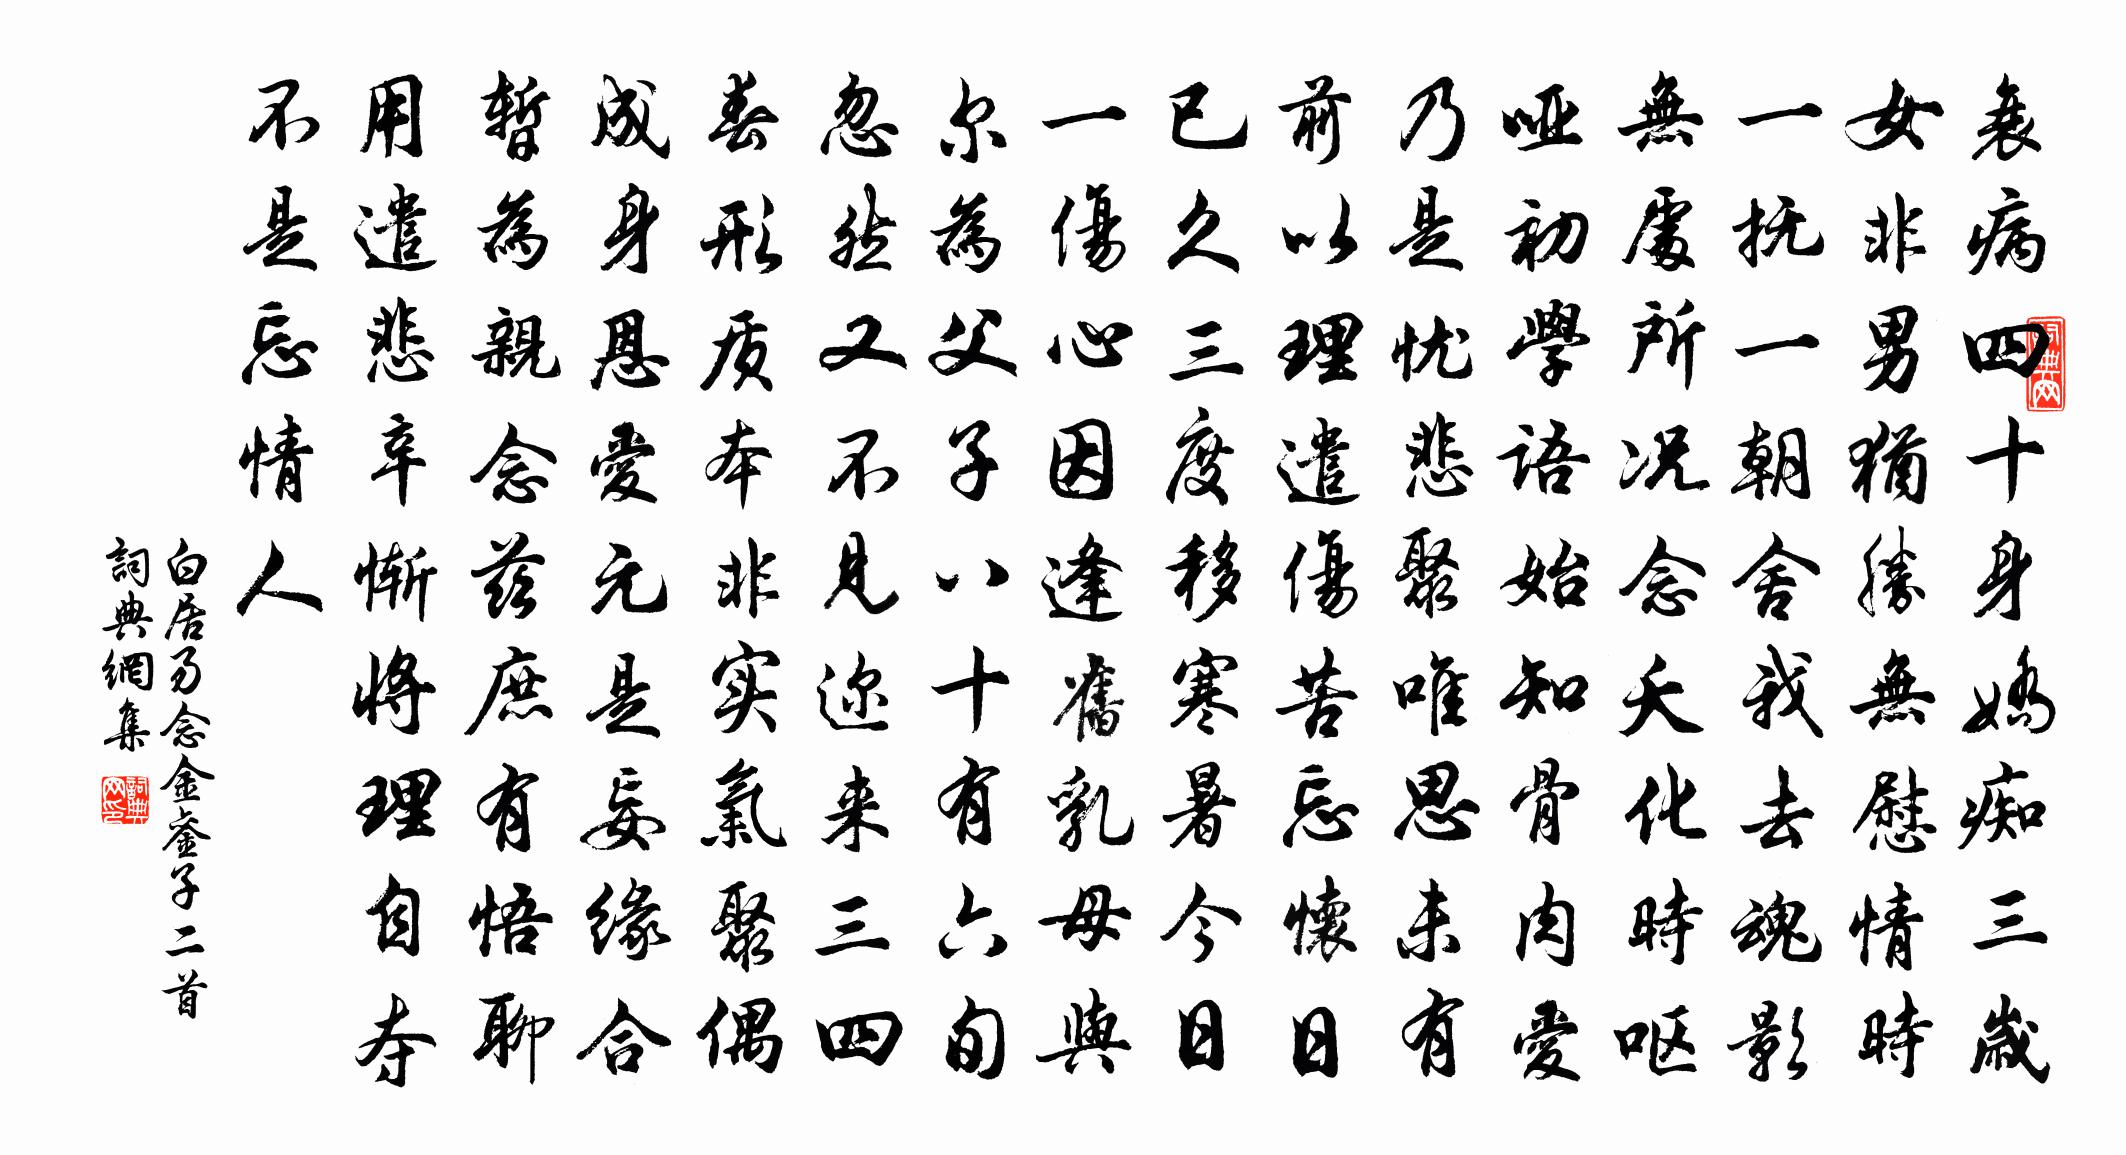 衰病四十身嬌痴三歲
女非男猶勝無慰情時
一抚一朝舍我去魂影
無處所况念夭化時呕
哑初學語始知骨肉愛
乃是忧悲聚唯思未有
前以理遣傷苦忘懷日
已久三度移寒暑今日
一傷心因逢舊乳母與
尔為父子八十有六旬
忽然又不見迩来三四
春形质本非实氣聚偶
成身恩愛元是妄缘合
暫為親念兹庶有悟聊
用遣悲辛惭将理自夺
不是忘情人
白居易念金銮子二首
詞典網集
詞典网
詞典网印